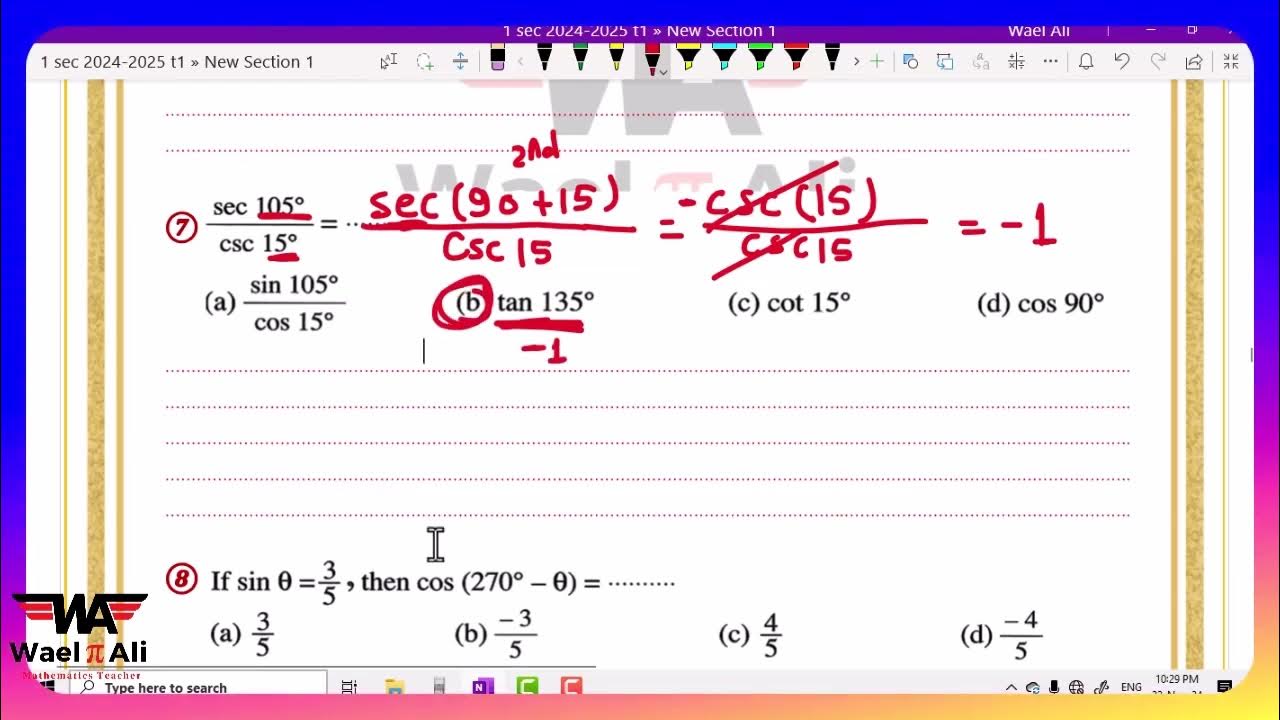 1 sec 2024-2025 t1 » New Section 1 Wael Ali
1 sec 2024-2025 t1 » New Section 1
WA
Wael π Ali
2nd
⑦ sec 105° / csc 15° = ·· sec (90 + 15) / csc 15 = - csc (15) / csc 15 = -1
(a) sin 105° / cos 15° (b) tan 135° (c) cot 15° (d) cos 90°
-1
⑧ If sin θ = 3/5 , then cos (270° – θ) = ··········
(a) 3/5 (b) –3/5 (c) 4/5 (d) –4/5
WA
Wael π Ali
Mathematics Teacher
Type here to search
ENG
10:29 PM